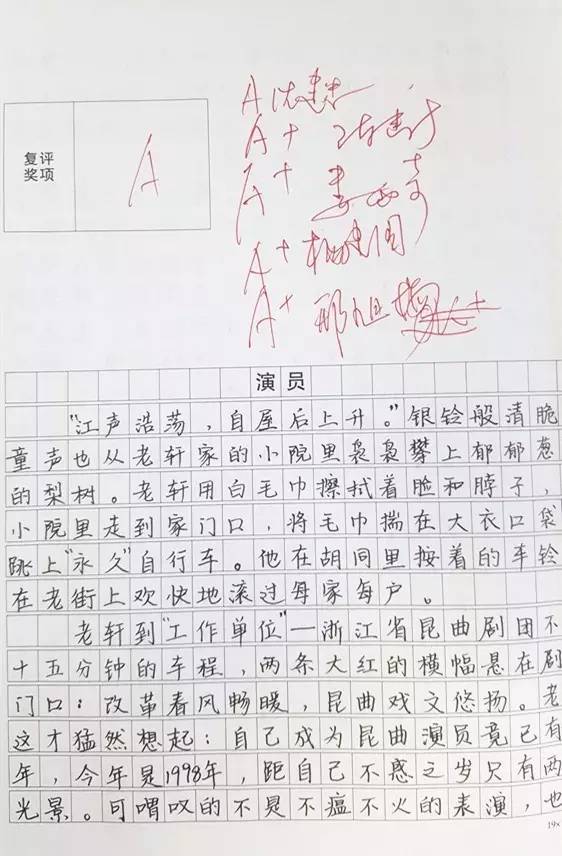 复评
奖项
A
A
A+
A+
A+
A+
演员
“江声浩荡,自屋后上升。”银铃般清脆
童声也从老轩家的小院里袅袅攀上郁郁葱
的梨树。老轩用白毛巾擦拭着脸和脖子,
小院里走到家门口,将毛巾揣在大衣口袋
跳上“永久”自行车。他在胡同里按着的车铃
在老街上欢快地滚过每家每户。
老轩到“工作单位”—浙江省昆曲剧团不
十五分钟的车程,两条大红的横幅悬在剧
门口:改革春风畅暖,昆曲戏文悠扬。老
这才猛然想起:自己成为昆曲演员竟已有
年,今年是1998年,距自己不惑之岁只有两
光景。可喟叹的不是不瘟不火的表演,也
19×